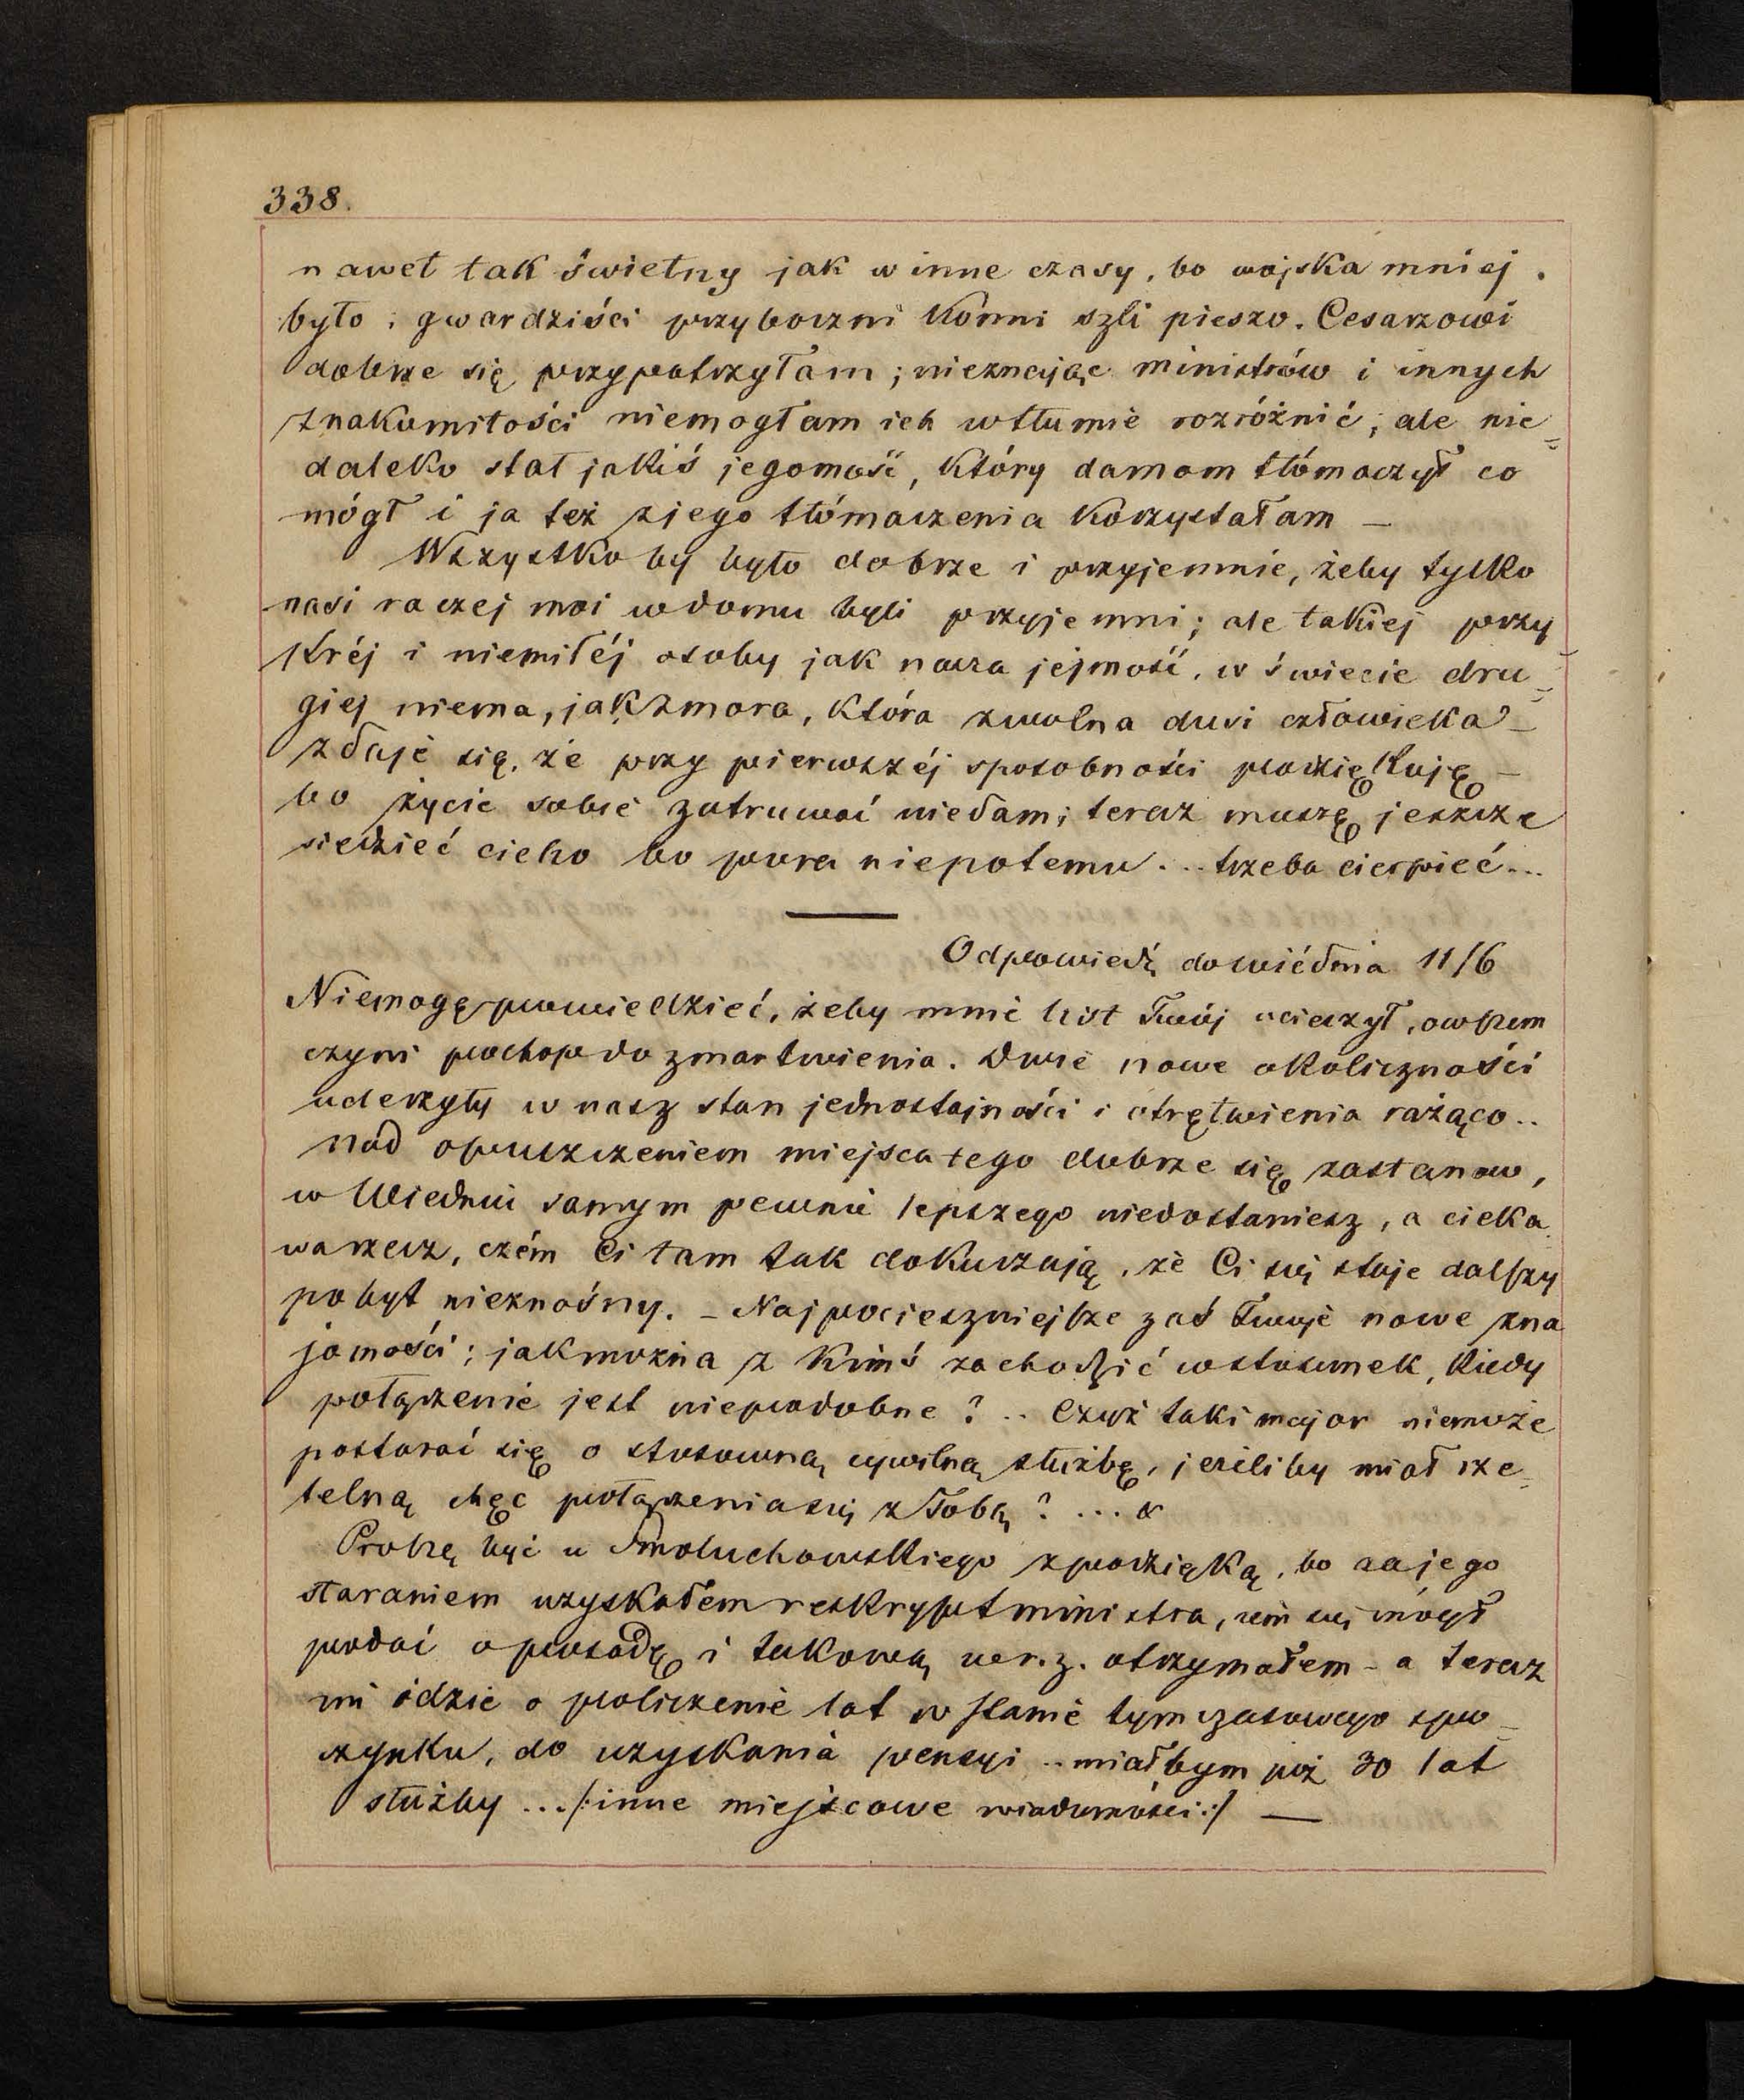 338.
nawet tak świetny jak w inne czasy, bo wojska mniej
było i gwardziści przyboczni konni szli pieszo. Cesarzowi
dobrze się przypatrzyłam; nieznając ministrów i innych
znakomitości niemogłam ich w tłumie rozróżnić, ale nie=
daleko stał jakiś jegomość, który damom tłómaczył co
mógł i ja też z jego tłómaczenia korzystałam —
Wszystko by było dobrze i przyjemnie, żeby tylko
nasi raczej moi w domu byli przyjemni; ale takiej przy
krej i niemiłéj osoby jak nasza jejmość, w świecie dru=
giej niema, jak zmora, która zwolna dusi człowieka —
zdaje się, że przy pierwszéj sposobności podziękuję —
bo życie sobie zatruwać niedam; teraz muszę jeszcze
siedzieć cicho bo pora niepotemu... trzeba cierpieć...
Odpowiedź do Wiédnia 11/6
Niemogę powiedzieć, żeby mnie list Twój ucieszył, owszem
czyni pochop do zmartwienia. Dwie nowe okoliczności
uderzyły w nasz stan jednostajności i otrętwienia rażąco..
nad opuszczeniem miejsca tego dobrze się zastanów,
w Wiedniu samym pewnie lepszego niedostaniesz, a cieka
wa rzecz, czém Ci tam tak dokuczają, że Ci się staje dalszy
pobyt nieznośny. — Najpocieszniejsze zaś Twoje nowe zna
jomości; jak można z kimś zachodzić w stosunek, kiedy
połączenie jest niepodobne? .. Czyż taki major niemoże
postarać się o stosowną cywilną służbę, jeżeliby miał rze=
telną chęć połączenia się z Tobą? ...
Proszę być u Smoluchowskiego z podzięką, bo za jego
staraniem uzyskałem reskrypt ministra, żem się mógł
podać o posadę i takową otrzymałem — a teraz
mi idzie o policzenie lat w stanie tymczasowego spo=
czynku, do uzyskania pensyi .. miałbym już 30 lat
służby ... /: inne miejscowe wiadomości :/ —